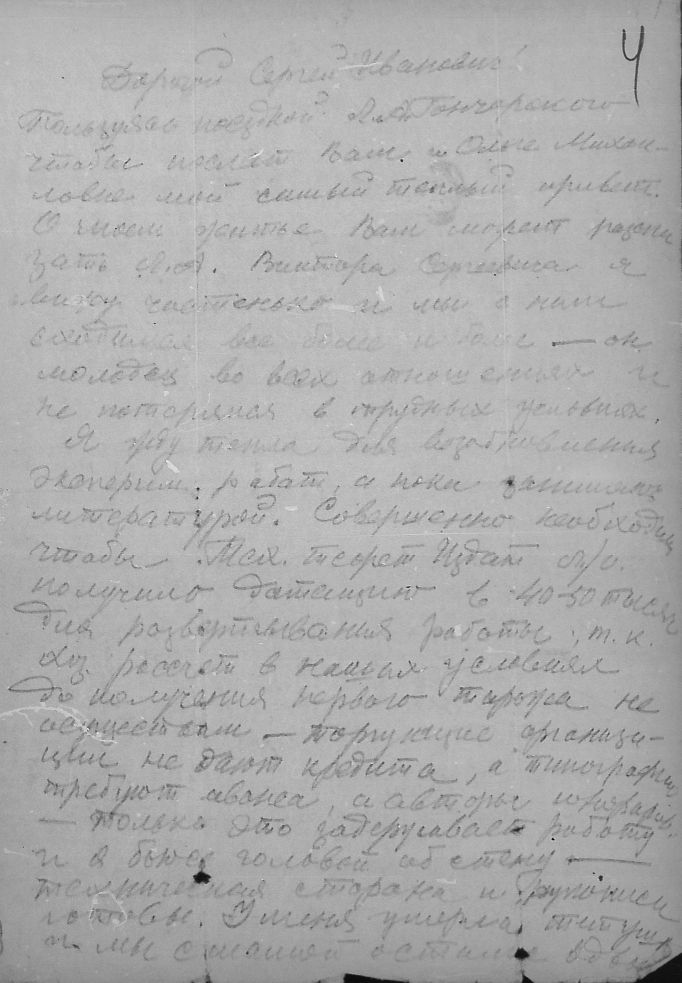 4
Дорогой Сергей Иванович!
Пользуясь поездкой Л.А. Гончарского
чтобы послать Вам и Ольге Михай-
ловне мой самый теплый привет.
О нашем житье Вам может расска
зать Л.А. Виктора Сергеевича я
вижу частенько и мы с ним
сходимся все более и более — он
молодец во всех отношениях и
не потерялся в трудных условиях.
Я жду тепла для возобновления
эксперим. работ, а пока занимаюсь
литературой. Совершенно необходимо
чтобы Тех. теорет Издат
получило дотацию в 40-50 тысяч
для развертывания работы, т.к.
хоз рассчет в наших условиях
до получения первого тиража не
осуществим — торгующие организа-
ции не дают кредита, а типографии
требуют аванса, а авторы гонорара
— только это задерживает работу
и я бьюсь головой об стену —
техническая сторона и рукописи
готовы. У меня умерла тетушка
и мы с мамой остались одни